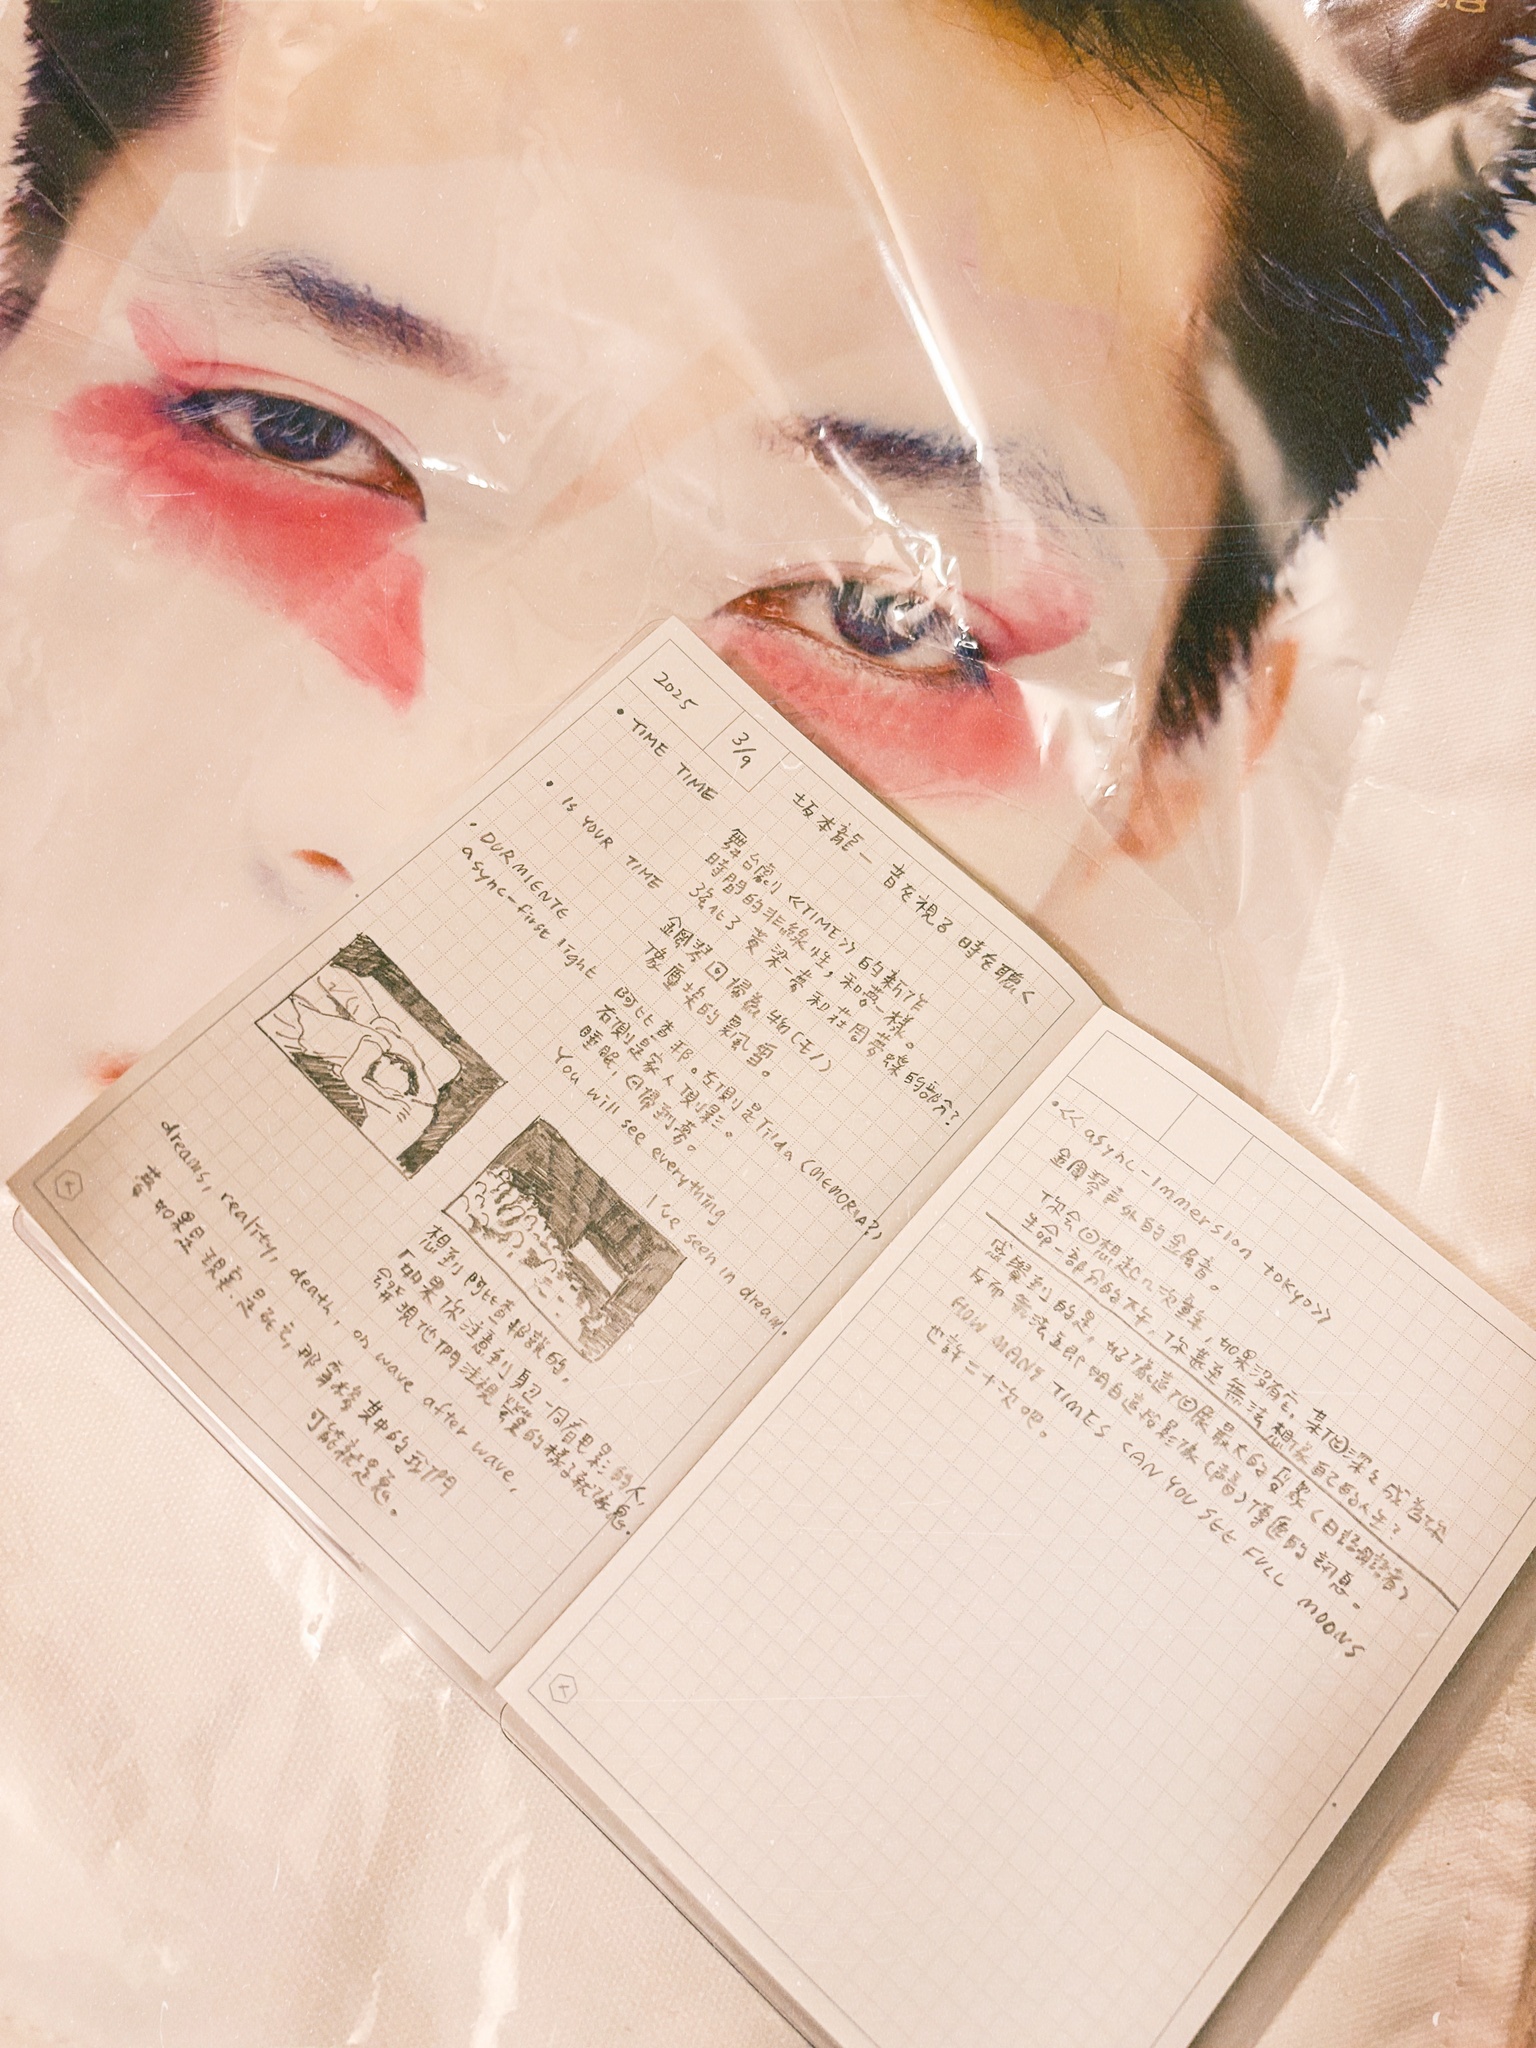 2025
3/9
坂本龍一 音を視る 時を聴く
• TIME TIME
舞台劇《TIME》的新作
時間的非線性，和夢一樣。
強化了黃梁一夢和莊周夢蝶的部分？
• IS YOUR TIME
鋼琴回歸為物(モノ)
像塵埃的暴風雪。
• DURMIENTE
async-first light
阿比查邦。左側是Tilda (MEMORIA?)
右側是家人側影。
睡眠，回歸到夢。
You will see everything
I've seen in dream.
想到阿比查邦說的，
「如果你注意到身邊一同看電影的人，
會發現他們注視螢幕的樣子就像鬼。
dreams, reality, death, on wave after wave,
如果是現實，是死亡，那穿梭其中的我們
可能就是鬼。
• 《async-immersion tokyo》
鋼琴聲外的金屬音。
你會回想起n次童年，如果沒有它，某個深深成為你
生命一部分的下午，你甚至無法想像自己的人生？
感覺到的是，好像這個展最大的
反而無法立即明白這段影像(聲音)傳遞的訊息。
HOW MANY TIMES CAN YOU SEE FULL MOONS
也許二十次吧。